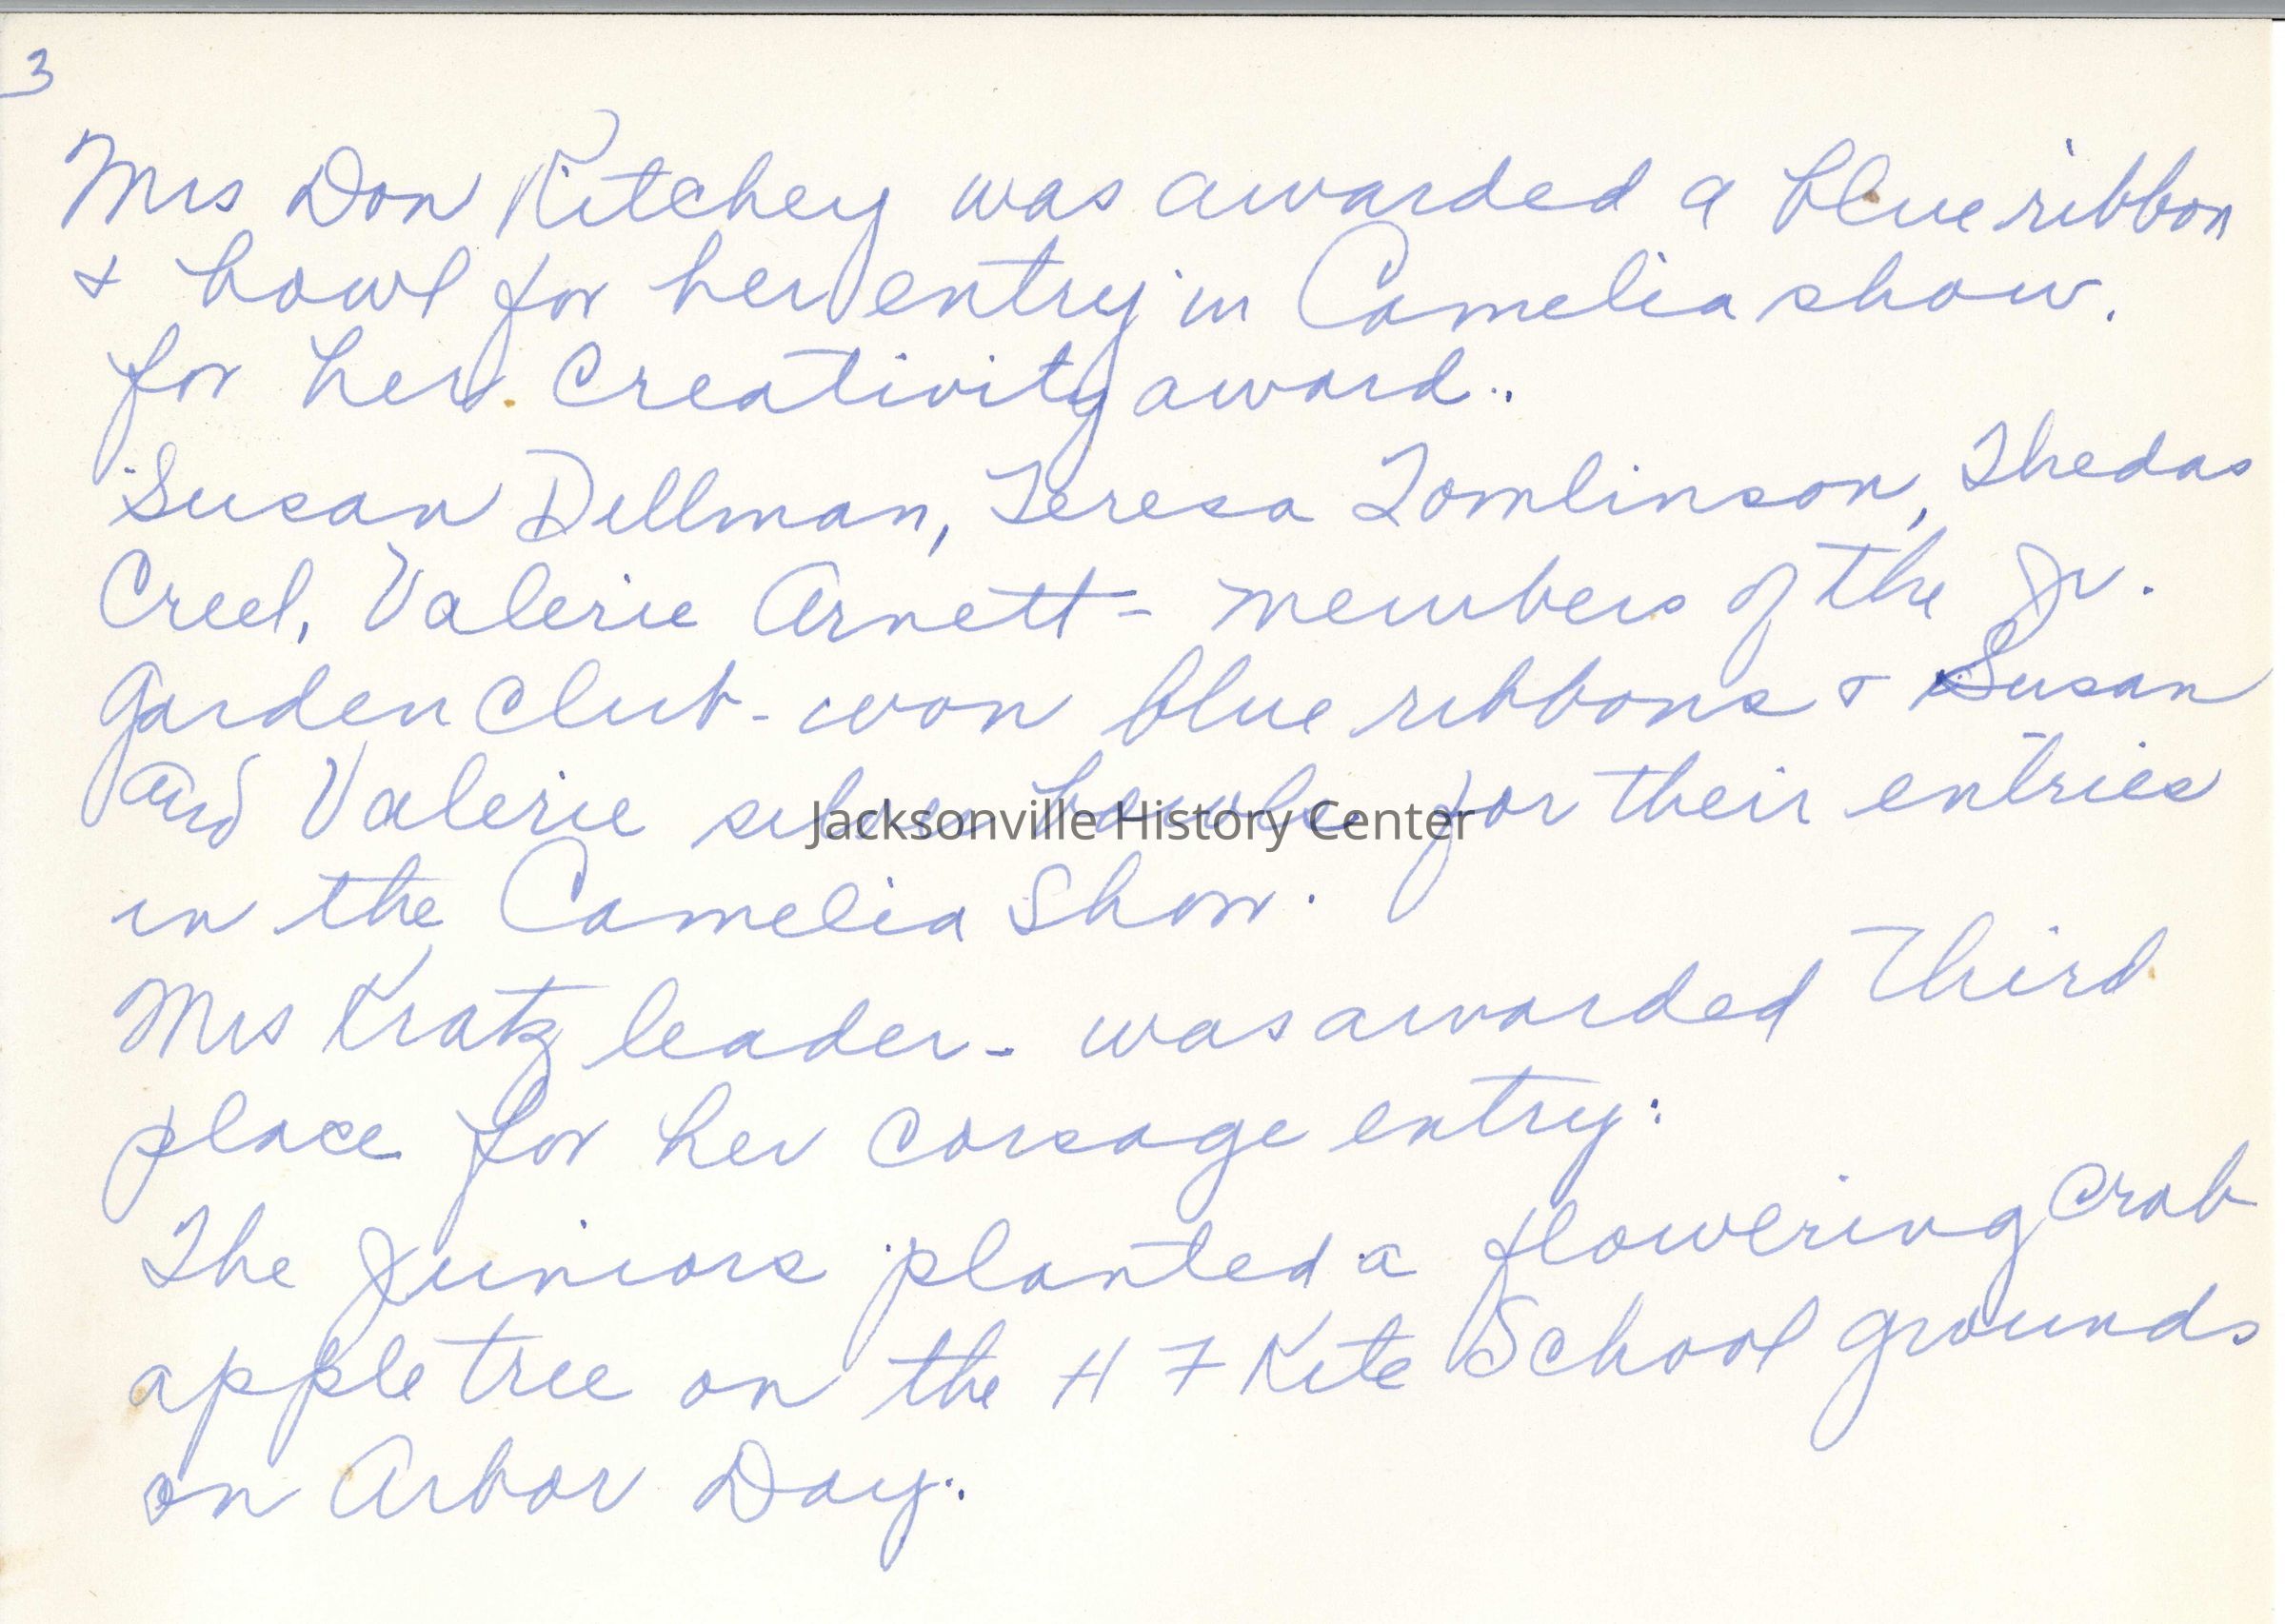 3
Mrs Don Ritchey was awarded a blue ribbon
& bowl for her entry in Camelia show.
for her creativity award.
Susan Dillman, Teresa Tomlinson, Thedas
Creel, Valerie Arnett = members of the Jr.
Garden Club - won blue ribbons & Susan
and Valerie silver bowls for their entries
Jacksonville History Center
in the Camelia Show.
Mrs Kratz leader - was awarded Third
place for her corsage entry:
The Juniors planted a flowering Crab
apple tree on the H F Kite School grounds
on Arbor Day.